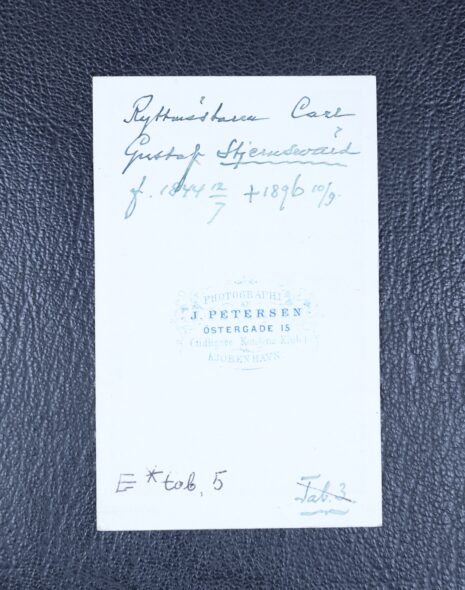 Ryttmästaren Carl
Gustaf Stjernswärd
f. 1844 12/7 +1896 10/9.
PHOTOGRAPHI
AF
J. PETERSEN
ÖSTERGADE 15
KJØBENHAVN
E *tab. 5
Tab. 3.